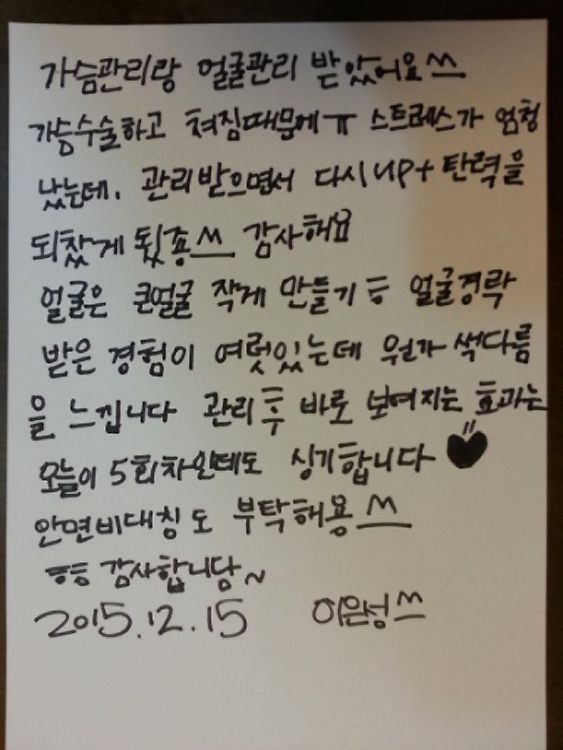 가슴관리랑 얼굴관리 받았어요^^
가슴수술하고 쳐짐때문에ㅠ 스트레스가 엄청
났는데, 관리받으면서 다시 up+탄력을
되찾게 됬죵^^ 감사해요
얼굴은 큰얼굴 작게 만들기 ㅎ 얼굴경락
받은 경험이 여럿있는데 뭔가 색다름
을 느낍니다 관리 후 바로 보여지는 효과는
오늘이 5회차인데도 싱기합니다 ♥
안면비대칭도 부탁해용^^
ㅎㅎ 감사합니당~
2015.12.15